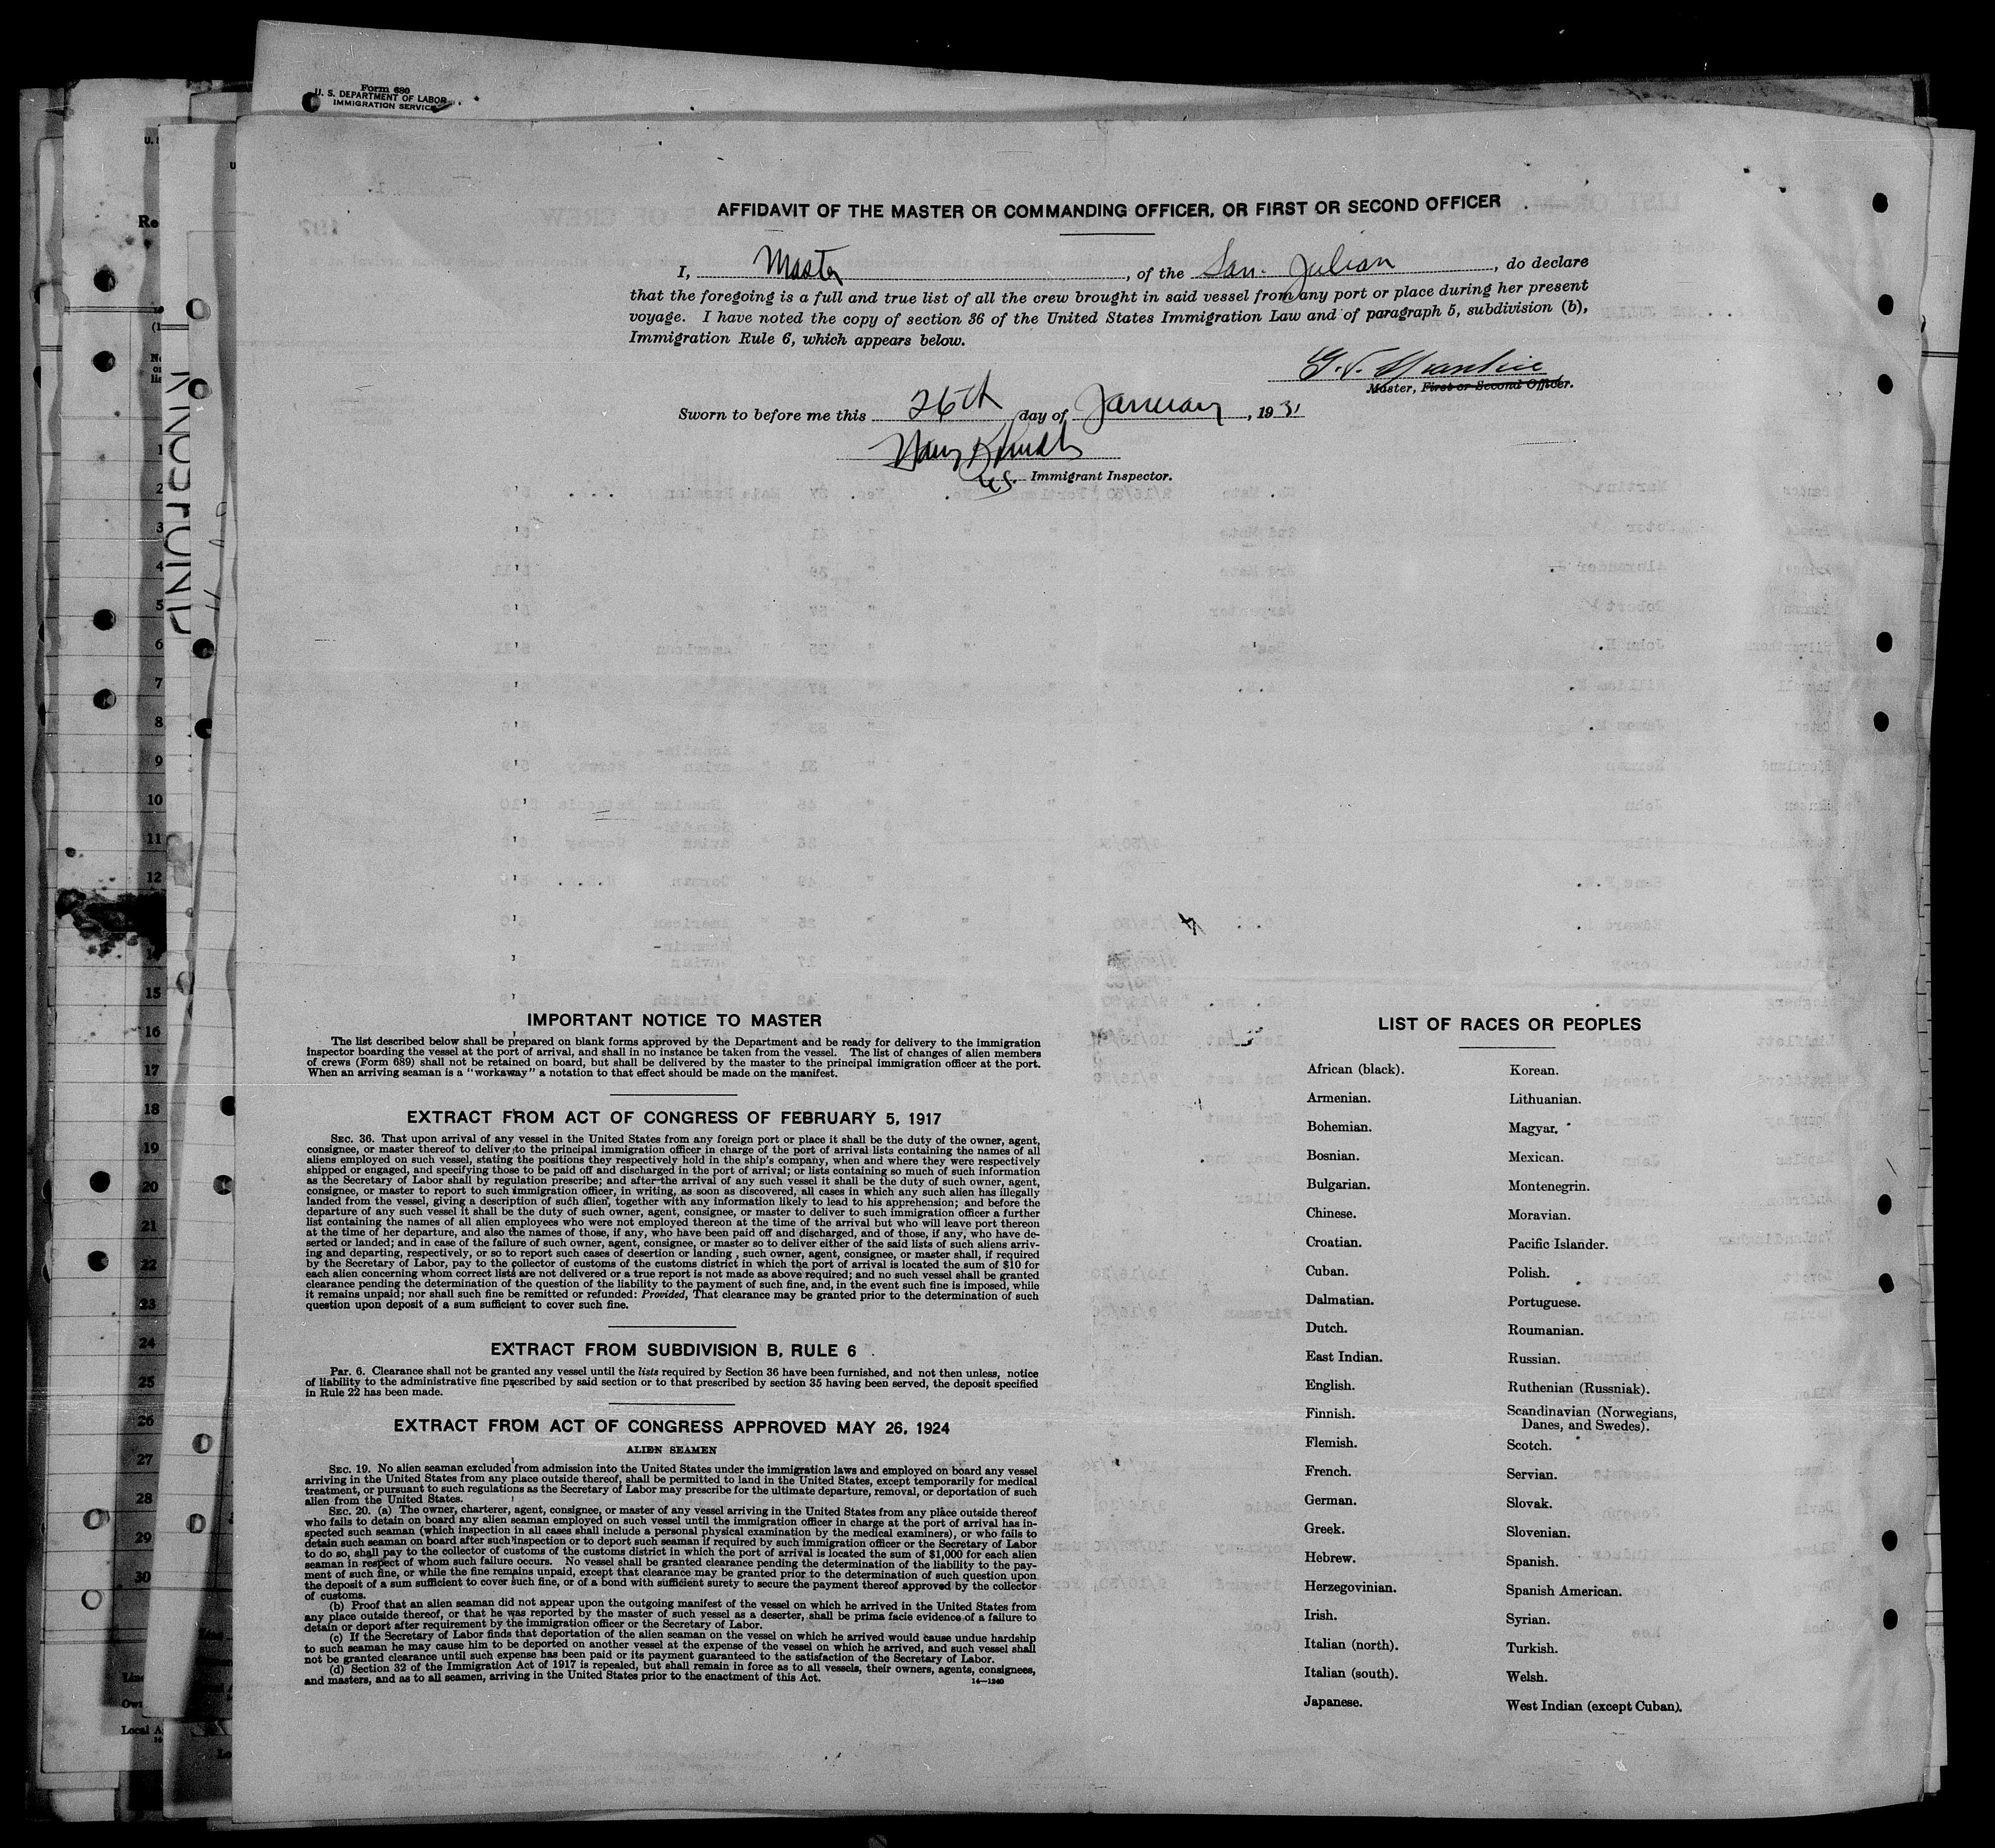 Form 680
U. S. DEPARTMENT OF LABOR
IMMIGRATION SERVICE
AFFIDAVIT OF THE MASTER OR COMMANDING OFFICER, OR FIRST OR SECOND OFFICER
I, Master, of the San Julian, do declare
that the foregoing is a full and true list of all the crew brought in said vessel from any port or place during her present
voyage. I have noted the copy of section 36 of the United States Immigration Law and of paragraph 5, subdivision (b),
Immigration Rule 6, which appears below.
Master, First or Second Officer.
Sworn to before me this 26th day of January, 1931
U.S. Immigrant Inspector.
IMPORTANT NOTICE TO MASTER
The list described below shall be prepared on blank forms approved by the Department and be ready for delivery to the immigration
inspector boarding the vessel at the port of arrival, and shall in no instance be taken from the vessel. The list of changes of alien members
of crews (Form 689) shall not be retained on board, but shall be delivered by the master to the principal immigration officer at the port.
When an arriving seaman is a "workaway" a notation to that effect should be made on the manifest.
EXTRACT FROM ACT OF CONGRESS OF FEBRUARY 5, 1917
SEC. 36. That upon arrival of any vessel in the United States from any foreign port or place it shall be the duty of the owner, agent,
consignee, or master thereof to deliver to the principal immigration officer in charge of the port of arrival lists containing the names of all
aliens employed on such vessel, stating the positions they respectively hold in the ship's company, when and where they were respectively
shipped or engaged, and specifying those to be paid off and discharged in the port of arrival; or lists containing so much of such information
as the Secretary of Labor shall by regulation prescribe; and after the arrival of any such vessel it shall be the duty of such owner, agent,
consignee, or master to report to such immigration officer, in writing, as soon as discovered, all cases in which any such alien has illegally
landed from the vessel, giving a description of such alien, together with any information likely to lead to his apprehension; and before the
departure of any such vessel it shall be the duty of such owner, agent, consignee, or master to deliver to such immigration officer a further
list containing the names of all alien employees who were not employed thereon at the time of the arrival but who will leave port thereon
at the time of her departure, and also the names of those, if any, who have been paid off and discharged, and of those, if any, who have de-
serted or landed; and in case of the failure of such owner, agent, consignee, or master so to deliver either of the said lists of such aliens arriv-
ing and departing, respectively, or so to report such cases of desertion or landing , such owner, agent, consignee, or master shall, if required
by the Secretary of Labor, pay to the collector of customs of the customs district in which the port of arrival is located the sum of $10 for
each alien concerning whom correct lists are not delivered or a true report is not made as above required; and no such vessel shall be granted
clearance pending the determination of the question of the liability to the payment of such fine, and, in the event such fine is imposed, while
it remains unpaid; nor shall such fine be remitted or refunded: Provided, That clearance may be granted prior to the determination of such
question upon deposit of a sum sufficient to cover such fine.
EXTRACT FROM SUBDIVISION B, RULE 6
Par. 6. Clearance shall not be granted any vessel until the lists required by Section 36 have been furnished, and not then unless, notice
of liability to the administrative fine prescribed by said section or to that prescribed by section 35 having been served, the deposit specified
in Rule 22 has been made.
EXTRACT FROM ACT OF CONGRESS APPROVED MAY 26, 1924
ALIEN SEAMEN
SEC. 19. No alien seaman excluded from admission into the United States under the immigration laws and employed on board any vessel
arriving in the United States from any place outside thereof, shall be permitted to land in the United States, except temporarily for medical
treatment, or pursuant to such regulations as the Secretary of Labor may prescribe for the ultimate departure, removal, or deportation of such
alien from the United States.
SEC. 20. (a) The owner, charterer, agent, consignee, or master of any vessel arriving in the United States from any place outside thereof
who fails to detain on board any alien seaman employed on such vessel until the immigration officer in charge at the port of arrival has in-
spected such seaman (which inspection in all cases shall include a personal physical examination by the medical examiners), or who fails to
detain such seaman on board after such inspection or to deport such seaman if required by such immigration officer or the Secretary of Labor
to do so, shall pay to the collector of customs of the customs district in which the port of arrival is located the sum of $1,000 for each alien
seaman in respect of whom such failure occurs. No vessel shall be granted clearance pending the determination of the liability to the pay-
ment of such fine, or while the fine remains unpaid, except that clearance may be granted prior to the determination of such question upon
the deposit of a sum sufficient to cover such fine, or of a bond with sufficient surety to secure the payment thereof approved by the collector
of customs.
(b) Proof that an alien seaman did not appear upon the outgoing manifest of the vessel on which he arrived in the United States from
any place outside thereof, or that he was reported by the master of such vessel as a deserter, shall be prima facie evidence of a failure to
detain or deport after requirement by the immigration officer or the Secretary of Labor.
(c) If the Secretary of Labor finds that deportation of the alien seaman on the vessel on which he arrived would cause undue hardship
to such seaman he may cause him to be deported on another vessel at the expense of the vessel on which he arrived, and such vessel shall
not be granted clearance until such expense has been paid or its payment guaranteed to the satisfaction of the Secretary of Labor.
(d) Section 32 of the Immigration Act of 1917 is repealed, but shall remain in force as to all vessels, their owners, agents, consignees,
and masters, and as to all seamen, arriving in the United States prior to the enactment of this Act.
14—1240
LIST OF RACES OR PEOPLES
African (black).
Armenian.
Bohemian.
Bosnian.
Bulgarian.
Chinese.
Croatian.
Cuban.
Dalmatian.
Dutch.
East Indian.
English.
Finnish.
Flemish.
French.
German.
Greek.
Hebrew.
Herzegovinian.
Irish.
Italian (north).
Italian (south).
Japanese.
Korean.
Lithuanian.
Magyar.
Mexican.
Montenegrin.
Moravian.
Pacific Islander.
Polish.
Portuguese.
Roumanian.
Russian.
Ruthenian (Russniak).
Scandinavian (Norwegians,
Danes, and Swedes).
Scotch.
Servian.
Slovak.
Slovenian.
Spanish.
Spanish American.
Syrian.
Turkish.
Welsh.
West Indian (except Cuban).
1
2
3
4
5
6
7
8
9
10
11
12
14
15
16
17
18
19
20
21
22
23
24
25
26
27
28
29
30